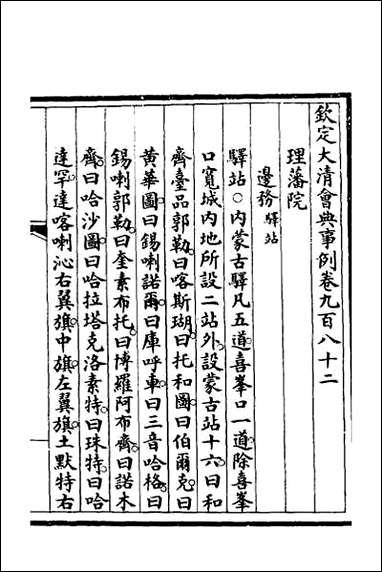 欽定大清會典事例卷九百八十二
理藩院
邊務 驛站
驛站○內蒙古驛凡五道喜峯口一道除喜峯
口寬城內地所設二站外設蒙古站十六曰和
齊臺品郭勒曰喀斯瑚曰托和圖曰伯爾克曰
黃華圖曰錫喇諾爾曰庫呼車曰三音哈格曰
錫喇郭勒曰奎素布托曰博羅阿布齊曰諾木
齊曰哈沙圖曰哈拉塔克洛素特曰珠特曰哈
達罕達喀喇沁右翼旗中旗左翼旗土默特右